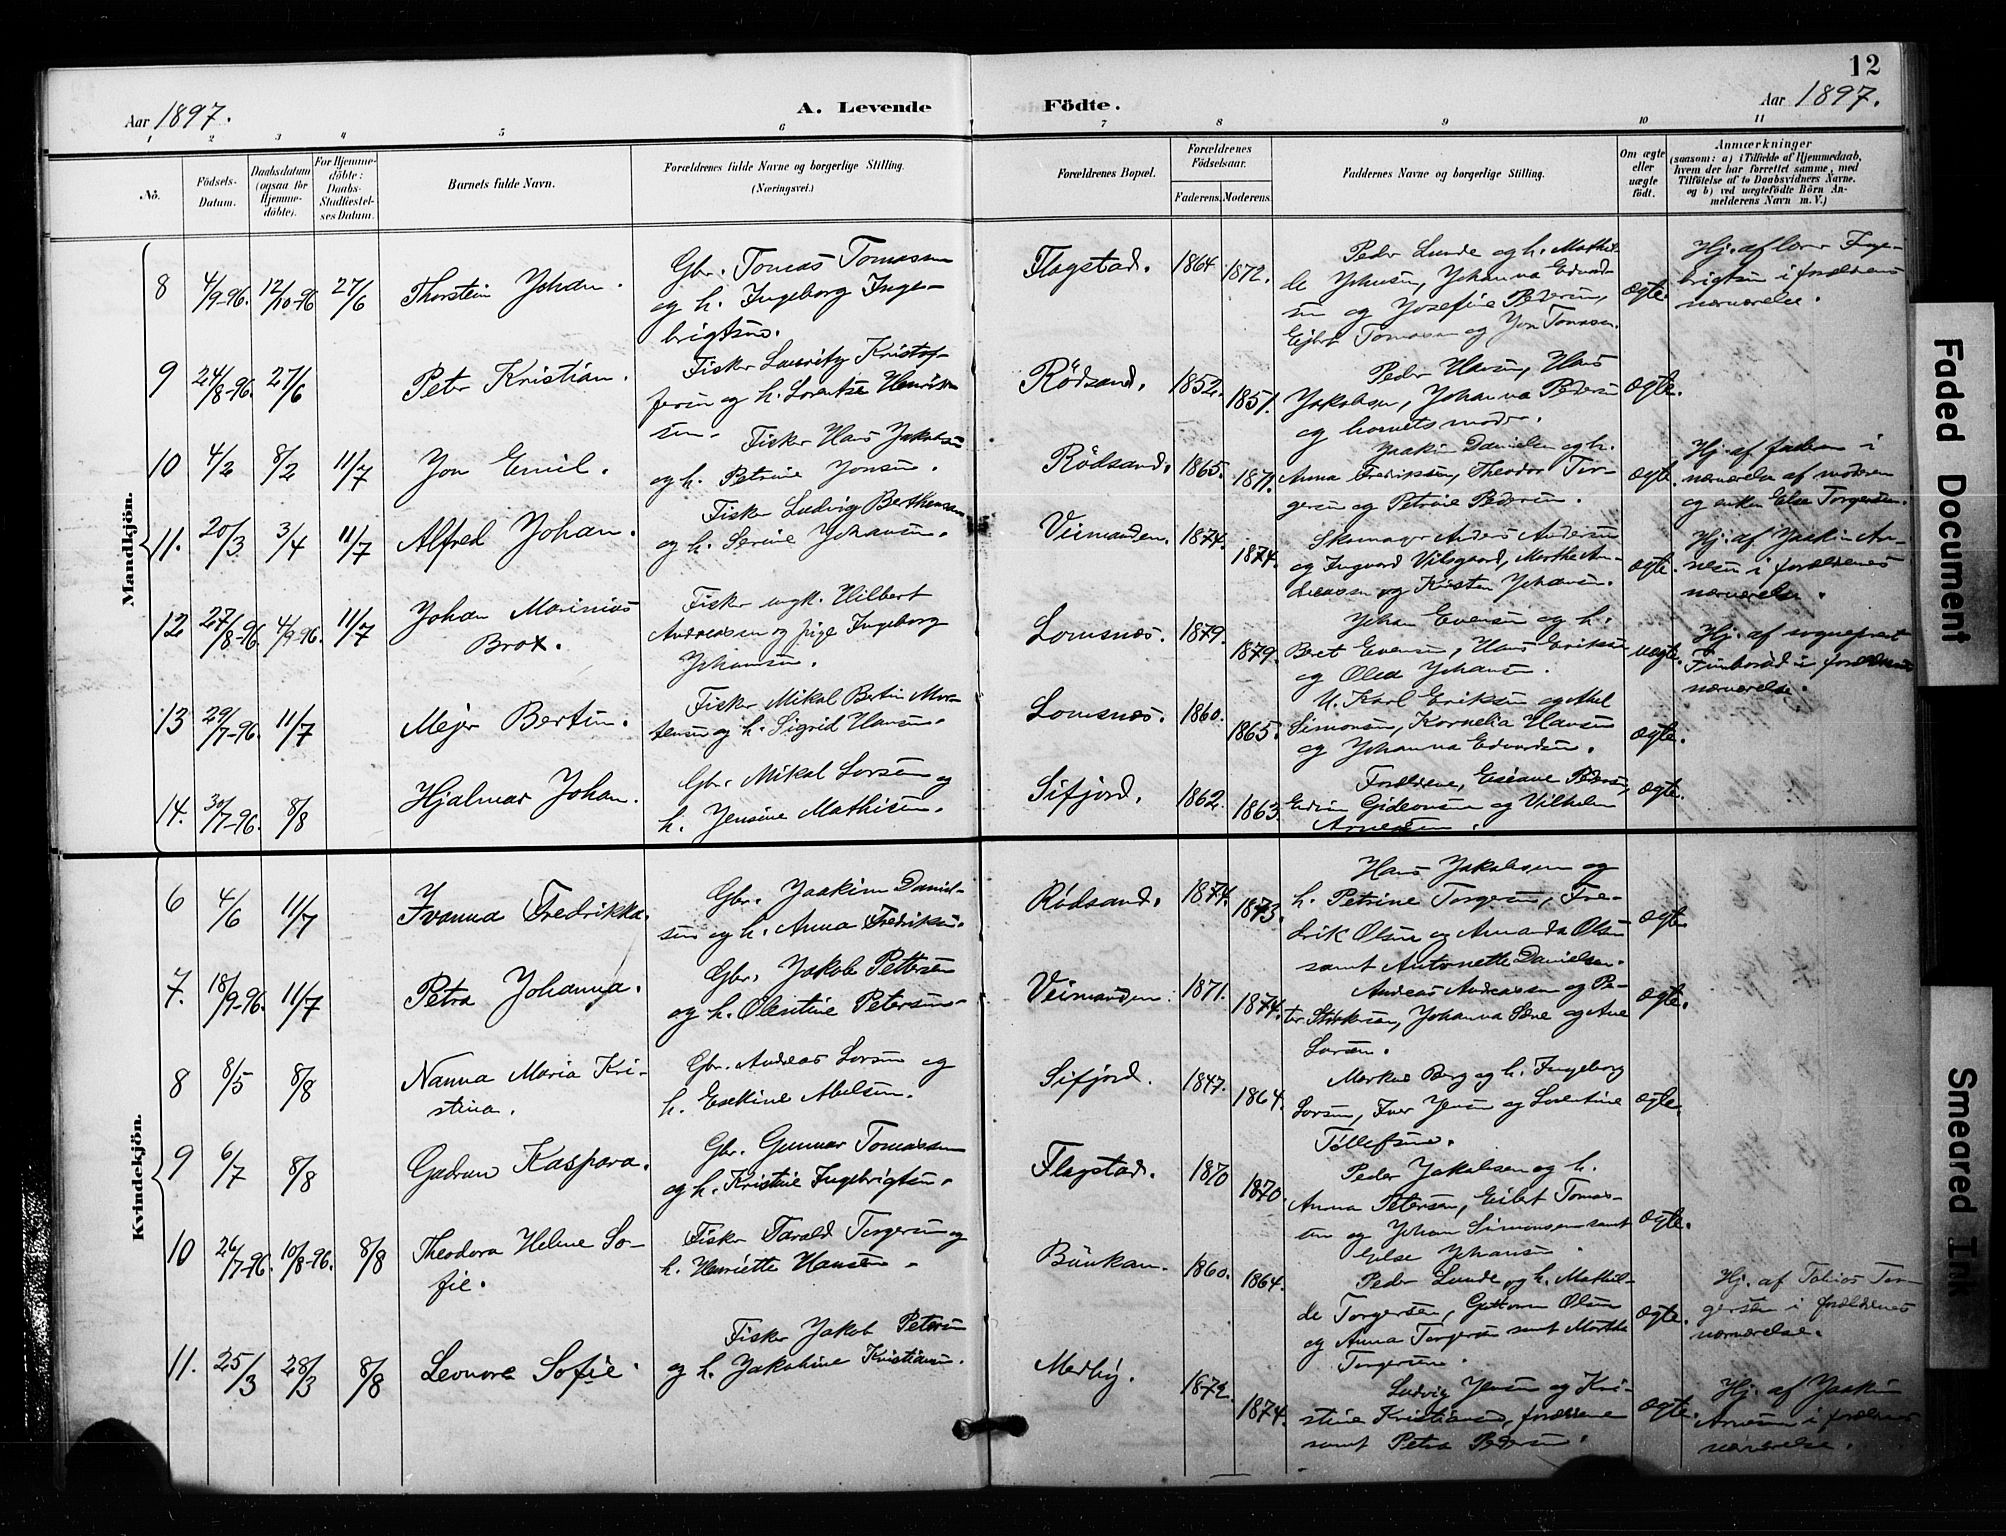 12
Aar 1897.
A. Levende Födte.
Aar 1897.
1 2 3 4 5 6 7 8 9 10 11
No.
Födsels-Datum.
Daabsdatum (ogsaa for Hjemme-döbte).
For Hjemme-döbte: Daabs-Stadfæstel-ses Datum.
Barnets fulde Navn.
Forældrenes fulde Navne og borgerlige Stilling.
(Næringsvei.)
Forældrenes Bopæl.
Forældrenes Födselsaar.
Faderens. Moderens.
Faddernes Navne og borgerlige Stilling.
Om ægte eller uægte födt.
Anmærkninger
(saasom: a) i Tilfælde af Hjemmedaab, hvem der har forrettet samme, med Tilföielse af to Daabsvidners Navne. og b) ved uægtefödte Börn Anmelderens Navn m. V.)
Mandkjön.
8 4/9-96. 12/10-96 27/6 Thorstein Johan.
Gbr. Tomas Tomassen
og h. Ingeborg Inge-
brigtsen.
Flagstad. 1864 1872.
Peder Lunde og h. Mathil-
de Johnsen, Johanna Edvard-
sen og Josefine Pedersen,
Eilert Tomassen og Jon Tomassen.
ægte.
Hj. af lærer Inge-
brigtsen i forældrenes
nærværelse.
9 24/8-96. 27/6 Peter Kristian.
Fisker Lauritz Kristof-
fersen og h. Lorentse Henrik-
sen.
Rödsand. 1852. 1851.
Peder Hansen, Hans
Jakobsen, Johanna Pedersen
og barnets moder.
ægte.
10 4/2 8/2 11/7 Jon Emil.
Fisker Hans Jakobsen
og h. Petrine Jonsen.
Rödsand. 1865. 1871.
Jaakim Danielsen og h.
Anna Fredriksen, Theodor Tor-
gersen og Petrine Pedersen.
ægte.
Hj. af faderen i
nærværelse af moderen
og enken Else Torgersen.
11. 20/3 3/4 11/7 Alfred Johan.
Fisker Ludvig Berthensen
og h. Serine Johansen.
Veimanden. 1874. 1874.
Skomager Anders Andersen
og Ingvard Vilsgaard, Marthe An-
dreassen og Kristen Johansen.
ægte.
Hj. af Jaakim Ar-
nesen i forældrenes
nærværelse.
12 27/8-96 4/9-96. 11/7 Johan Marinius
Brox.
Fisker ungk. Hilbert
Andreassen og pige Ingeborg
Johansen.
Lomsnes. 1879. 1879.
Johan Evensen og h.
Beret Evensen, Hans Eriksen
og Olea Johansen.
uægte.
Hj. af sogneprest
i forældrenes
nærværelse.
13 29/7-96. 11/7 Mejer Bertin.
Fisker Mikal Bertin Mor-
tensen og h. Sigrid Hansen.
Lomsnes. 1860. 1865.
U. Karl Eriksen og
Simonsen, Kornelia Hansen
og Johanna Edvardsen.
ægte.
14. 30/7-96. 8/8 Hjalmar Johan.
Gbr. Mikal Larsen og
h. Jensine Mathisen.
Sifjord. 1862. 1863.
Forældrene, Pedersen,
Edvin Gideonsen og Vilhelm
Arnesen.
ægte.
Kvindekjön.
6 4/6 11/7 Ivanna Fredrikka.
Gbr. Jaakim Daniel-
sen og h. Anna Fredriksen.
Rödsand. 1874. 1873.
Hans Jakobsen og
h. Petrine Torgersen, Fre-
drik Olsen og Amanda Olsen
samt Antonette Danielsen.
ægte.
7. 18/9-96. 11/7 Petra Johanna.
Gbr. Jakob Pettersen
og h. Olentine Petersen.
Veimanden. 1871. 1874.
Andreas Andreassen og Pe-
ter Johanna og Ane
Larsen.
ægte.
8 8/5 8/8 Nanna Maria Kri-
stina.
Gbr. Andreas Larsen og
h. Esekine Abelsen.
Sifjord. 1847. 1864.
Markus Berg og h. Ingeborg
Larsen, Iver Jensen og Lorentine
Tollefsen.
ægte.
9 6/7 8/8 Gudrun Kaspara.
Gbr. Gunnar Tomassen
og h. Kristine Ingebrigtsen.
Flagstad. 1870 1870.
Peder Jakobsen og h.
Anna Petersen, Eilert Tomas-
sen og Johan Simonsen samt
Else Johansen.
ægte.
10 26/7-96. 10/8-96. 8/8 Theodora Helene So-
fie.
Fisker Tarald Torgersen og
h. Henriette Hansen.
Bünkan. 1860. 1864.
Peder Lunde og h. Mathil-
de Torgersen, Guttorm Olsen
og Anna Torgersen samt Marthe
Torgersen.
ægte.
Hj. af Tobias Tor-
gersen i forældrenes
nærværelse.
11. 25/3 28/3 8/8 Leonore Sofie.
Fisker Jakob Petersen
og h. Jakobine Kristiansen.
Medby. 1872. 1874.
Ludvig Jensen og Kri-
stine Kristiansen, forældrene
samt Petra Pedersen.
ægte.
Hj. af Jaakim
Arnesen i forældrenes
nærværelse.
Faded Document
Smeared Ink